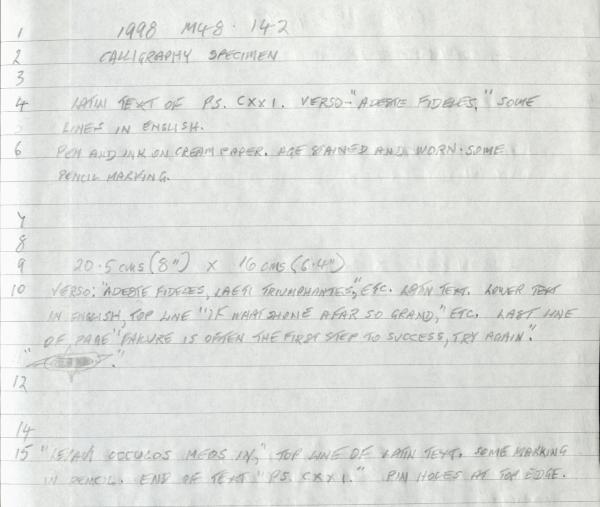 1 1998 M48.142
2 CALLIGRAPHY SPECIMEN
3
4 LATIN TEXT OF PS. CXXI. VERSO-"ADESTE FIDELES," SOME
5 LINES IN ENGLISH.
6 PEN AND INK ON CREAM PAPER. AGE STAINED AND WORN. SOME
PENCIL MARKING.
7
8
9 20.5 cms (8") x 16 cms (6.4")
10 VERSO: "ADESTE FIDELES, LAETI TRIUMPHANTES," ETC. LATIN TEXT. LOWER TEXT
IN ENGLISH, TOP LINE "IF WHAT SHONE AFAR SO GRAND," ETC. LAST LINE
OF PAGE "FAILURE IS OFTEN THE FIRST STEP TO SUCCESS, TRY AGAIN".
12
14
15 "LEVAVI OCCULOS MEOS IN," TOP LINE OF LATIN TEXT. SOME MARKING
IN PENCIL. END OF TEXT "PS. CXXI." PIN HOLES AT TOP EDGE.